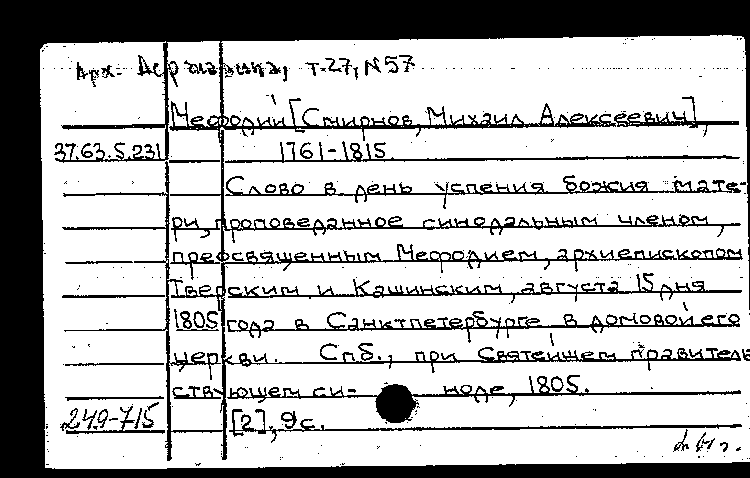 Арх. т-27, №57
Мефодий [Смирнов, Михаил Алексеевич],
37.63.5.231 1761-1815.
Слово в день успения божия мате-
ри, проповеданное синодальным членом,
преосвященным Мефодием, архиепископом
Тверским и Кашинским, августа 15 дня
1805 года в Санктпетербурге в домовой его
церкви. Спб., при Святейшем правитель
ствующем си- ноде, 1805.
249-715 [2], 9с.